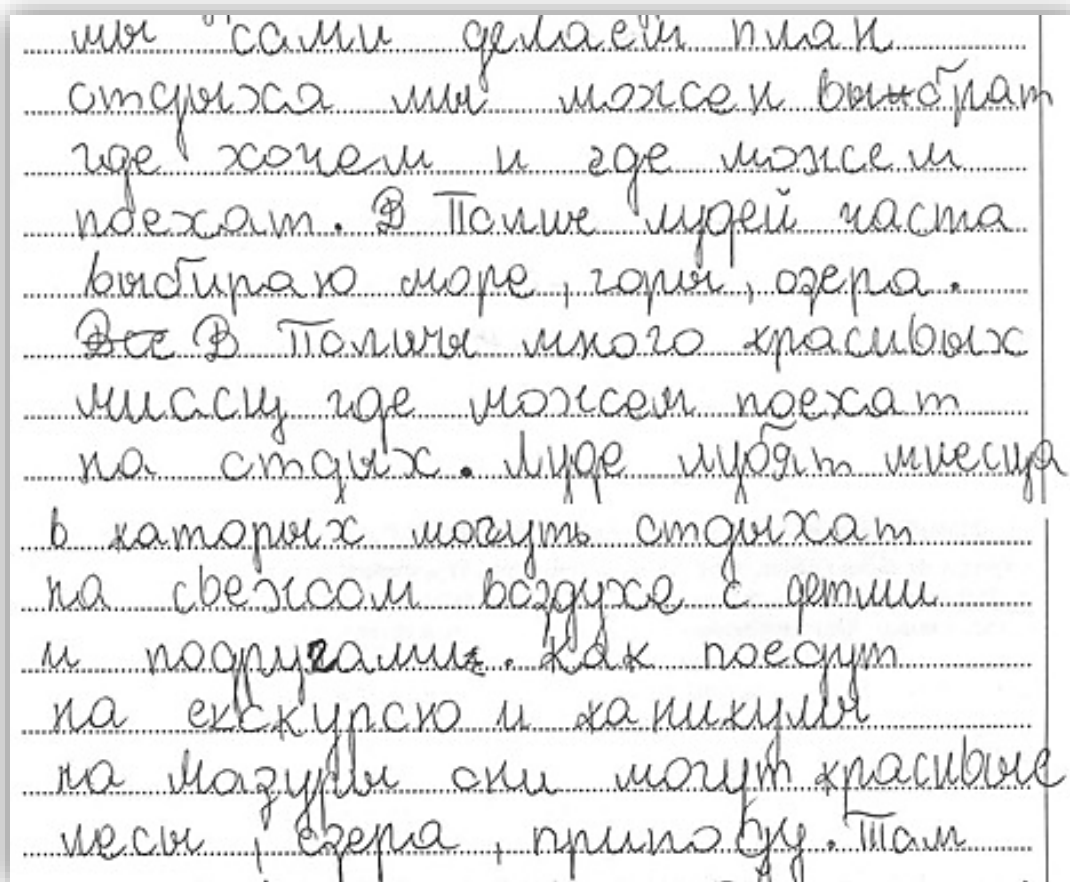 мы сами делаем план
отдыха мы можен вынбрат
где хочем и где можем
поехат. В Полше лудей часта
выбираю море, горы, озера.
Все В Полшчы много красивых
миасцц где можем поехат
на отдых. Луде лубят миесца
в каторых могуть отдыхат
на свежом воздухе с детми
и подругами. Как поедут
на екскурсю и каникулы
на Мазуры они могут красивые
лесы, езера, приподу. Там